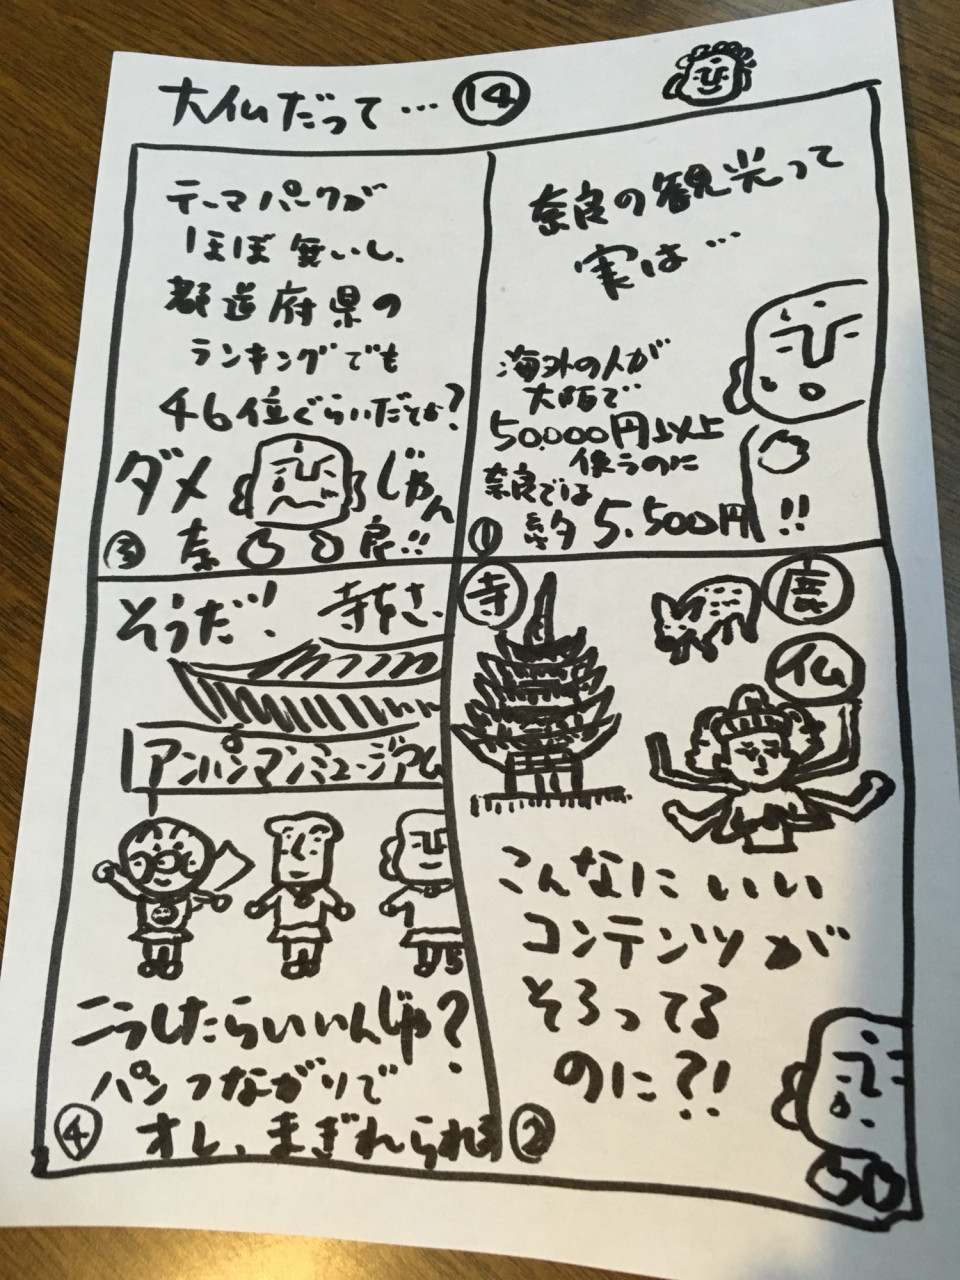 大仏だって… 14
奈良の観光って
実は…
海外の人が
大阪で
50,000円以上
使うのに
奈良では
約5,500円!!
①
寺
鹿
仏
こんなにいい
コンテンツが
そろってる
のに?!
②
テーマパークが
ほぼ無いし、
都道府県の
ランキングでも
46位ぐらいだでよ?
ダメじゃん
奈良!!
③
そうだ!
アンパンマンミュージアム
こうしたらいいんじゃ?
パンつながりで
オレ、まぎれられる
④